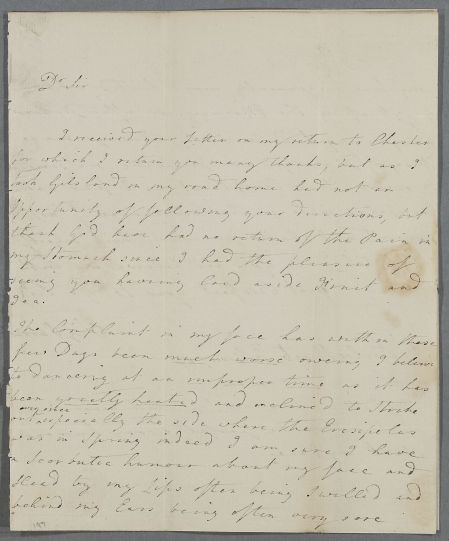 Dr Sir
I received your Letter on my return to Chester
for which I return you many thanks, but as I
took Gilsland in my road home had not an
Opportunity of following your directions, but
thank God have had no return of the Pain in
my Stomach since I had the pleasure of
seeing you having laid aside Fruit and
Tea.
The Complaint in my face has within these
few Days been much worse owing I believe
to Dancing at an improper time as it has
been greatly heated and inclined to Strike
out especially the side where the Eresipelas
was in Spring indeed I am sure I have
a Scorbutic humour about my face and
Head by my Lips often being Swelled and
behind my Ears being often very sore